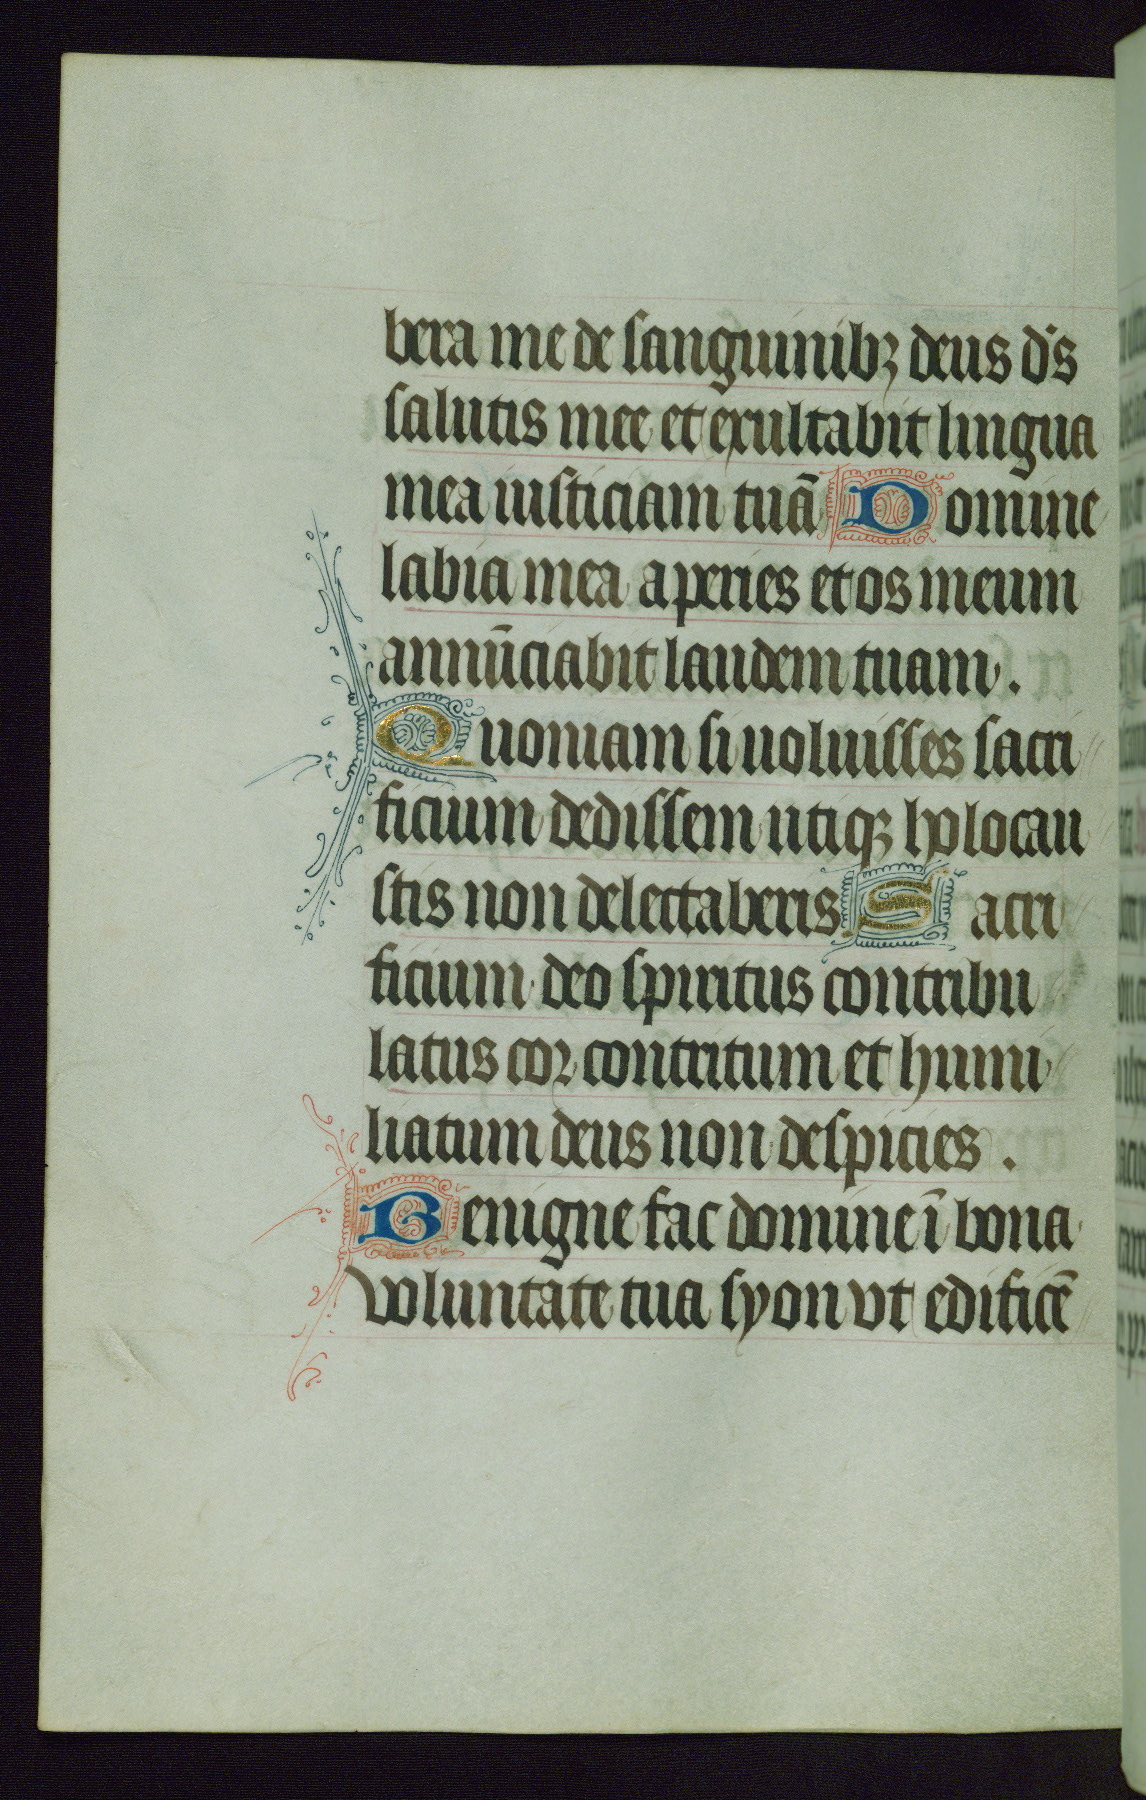 bera me de sanguinibꝫ deus dˢs
salutis mee et exultabit lingua
mea iusticiam tuā Domine
labia mea aperies et os meum
annūciabit laudem tuam.
Quoniam si uoluisses sacri
ficium dedissem utiqꝫ holocau
stis non delectaberis. Sacri
ficium deo spiritus contribu
latus cor contritum et humi
liatum deus non despicies.
Benigne fac domine ī bona
voluntate tua syon vt edificē